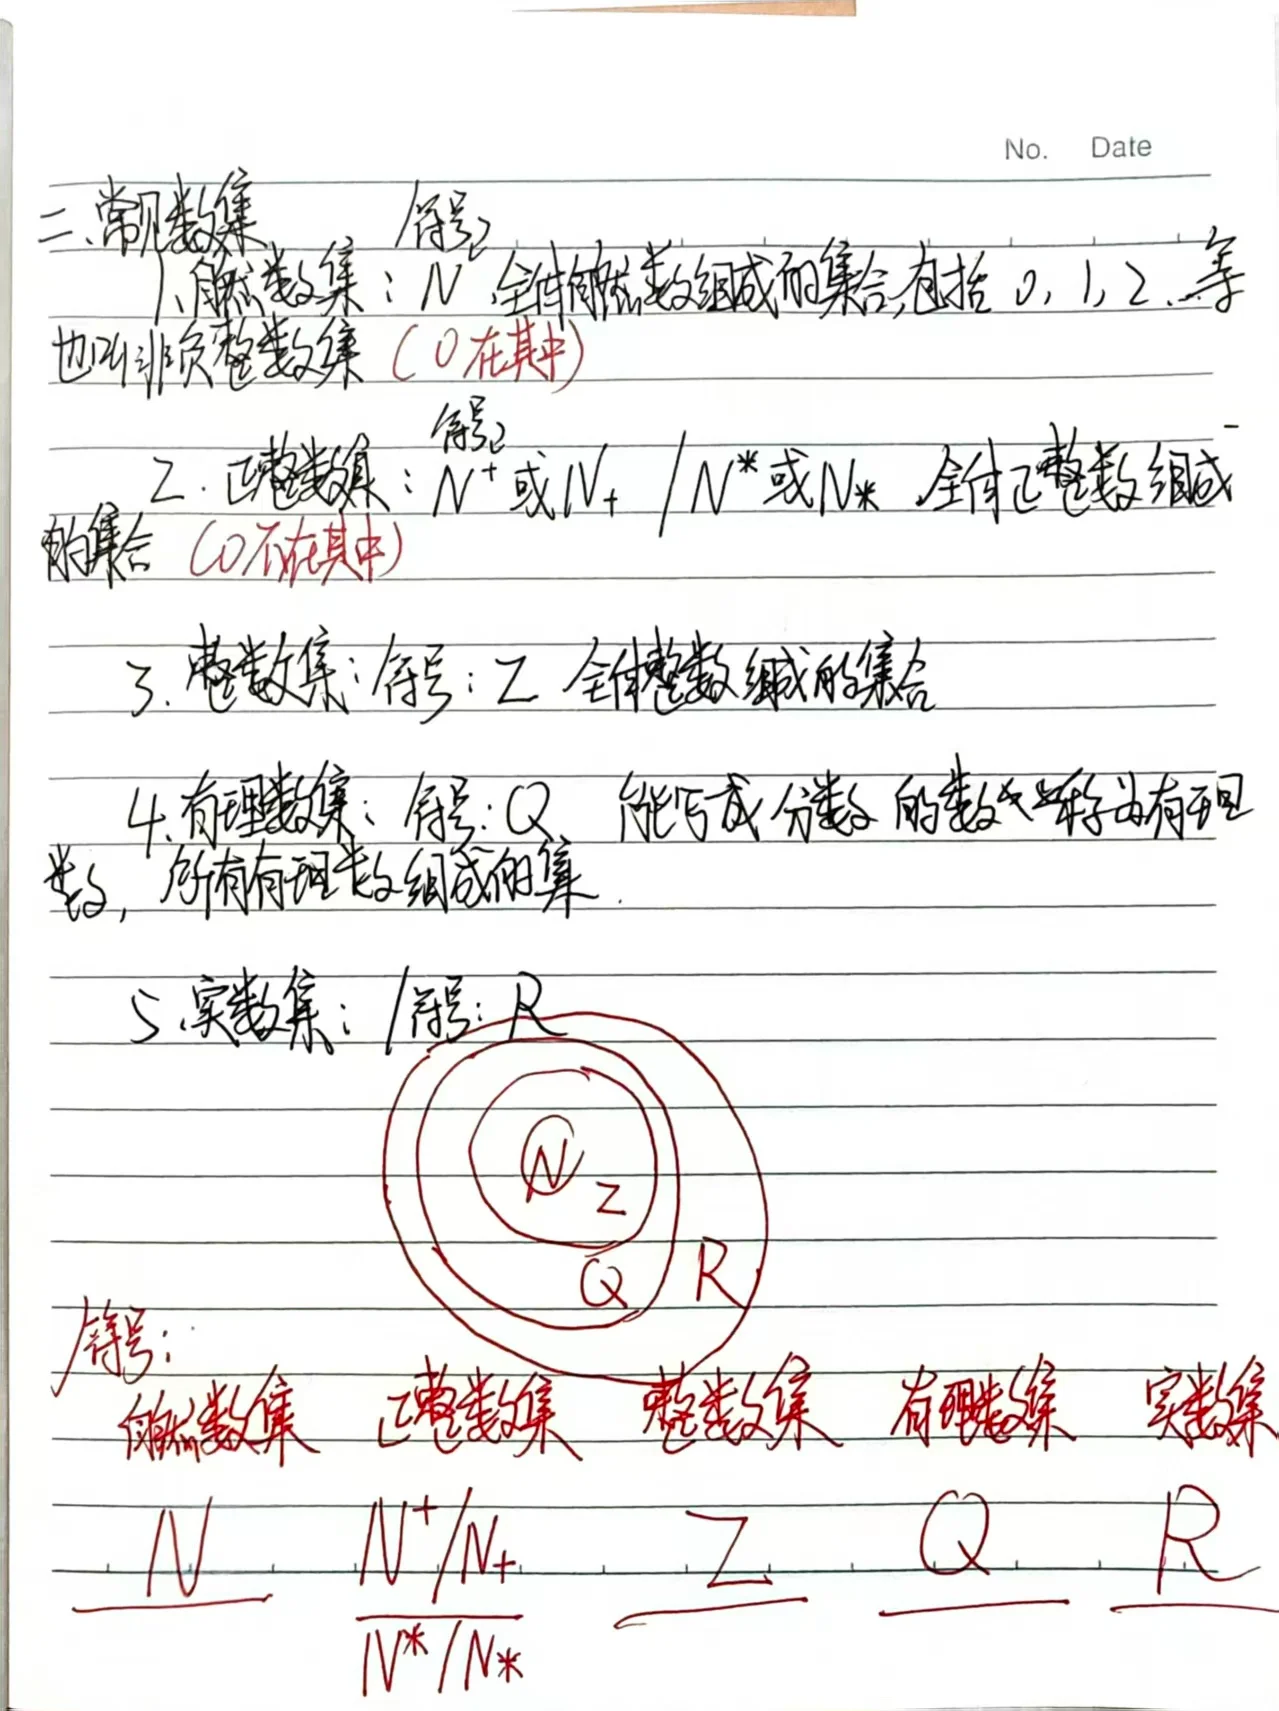 No. Date
二、常见数集 符号
1、自然数集：N 全体自然数组成的集合,包括 0, 1, 2 …等
也叫非负整数集 (0在其中)
符号
2. 正整数集：N⁺或N₊ / N*或N* 全体正整数组成
的集合 (0不在其中)
3. 整数集：符号：Z 全体整数组成的集合
4、有理数集：符号：Q 能写成分数的数 称为有理
数, 所有有理数组成的集.
5、实数集：符号：R
N
Z
Q R
符号：
自然数集 正整数集 整数集 有理数集 实数集
N N⁺/N₊ Z Q R
N*/N*